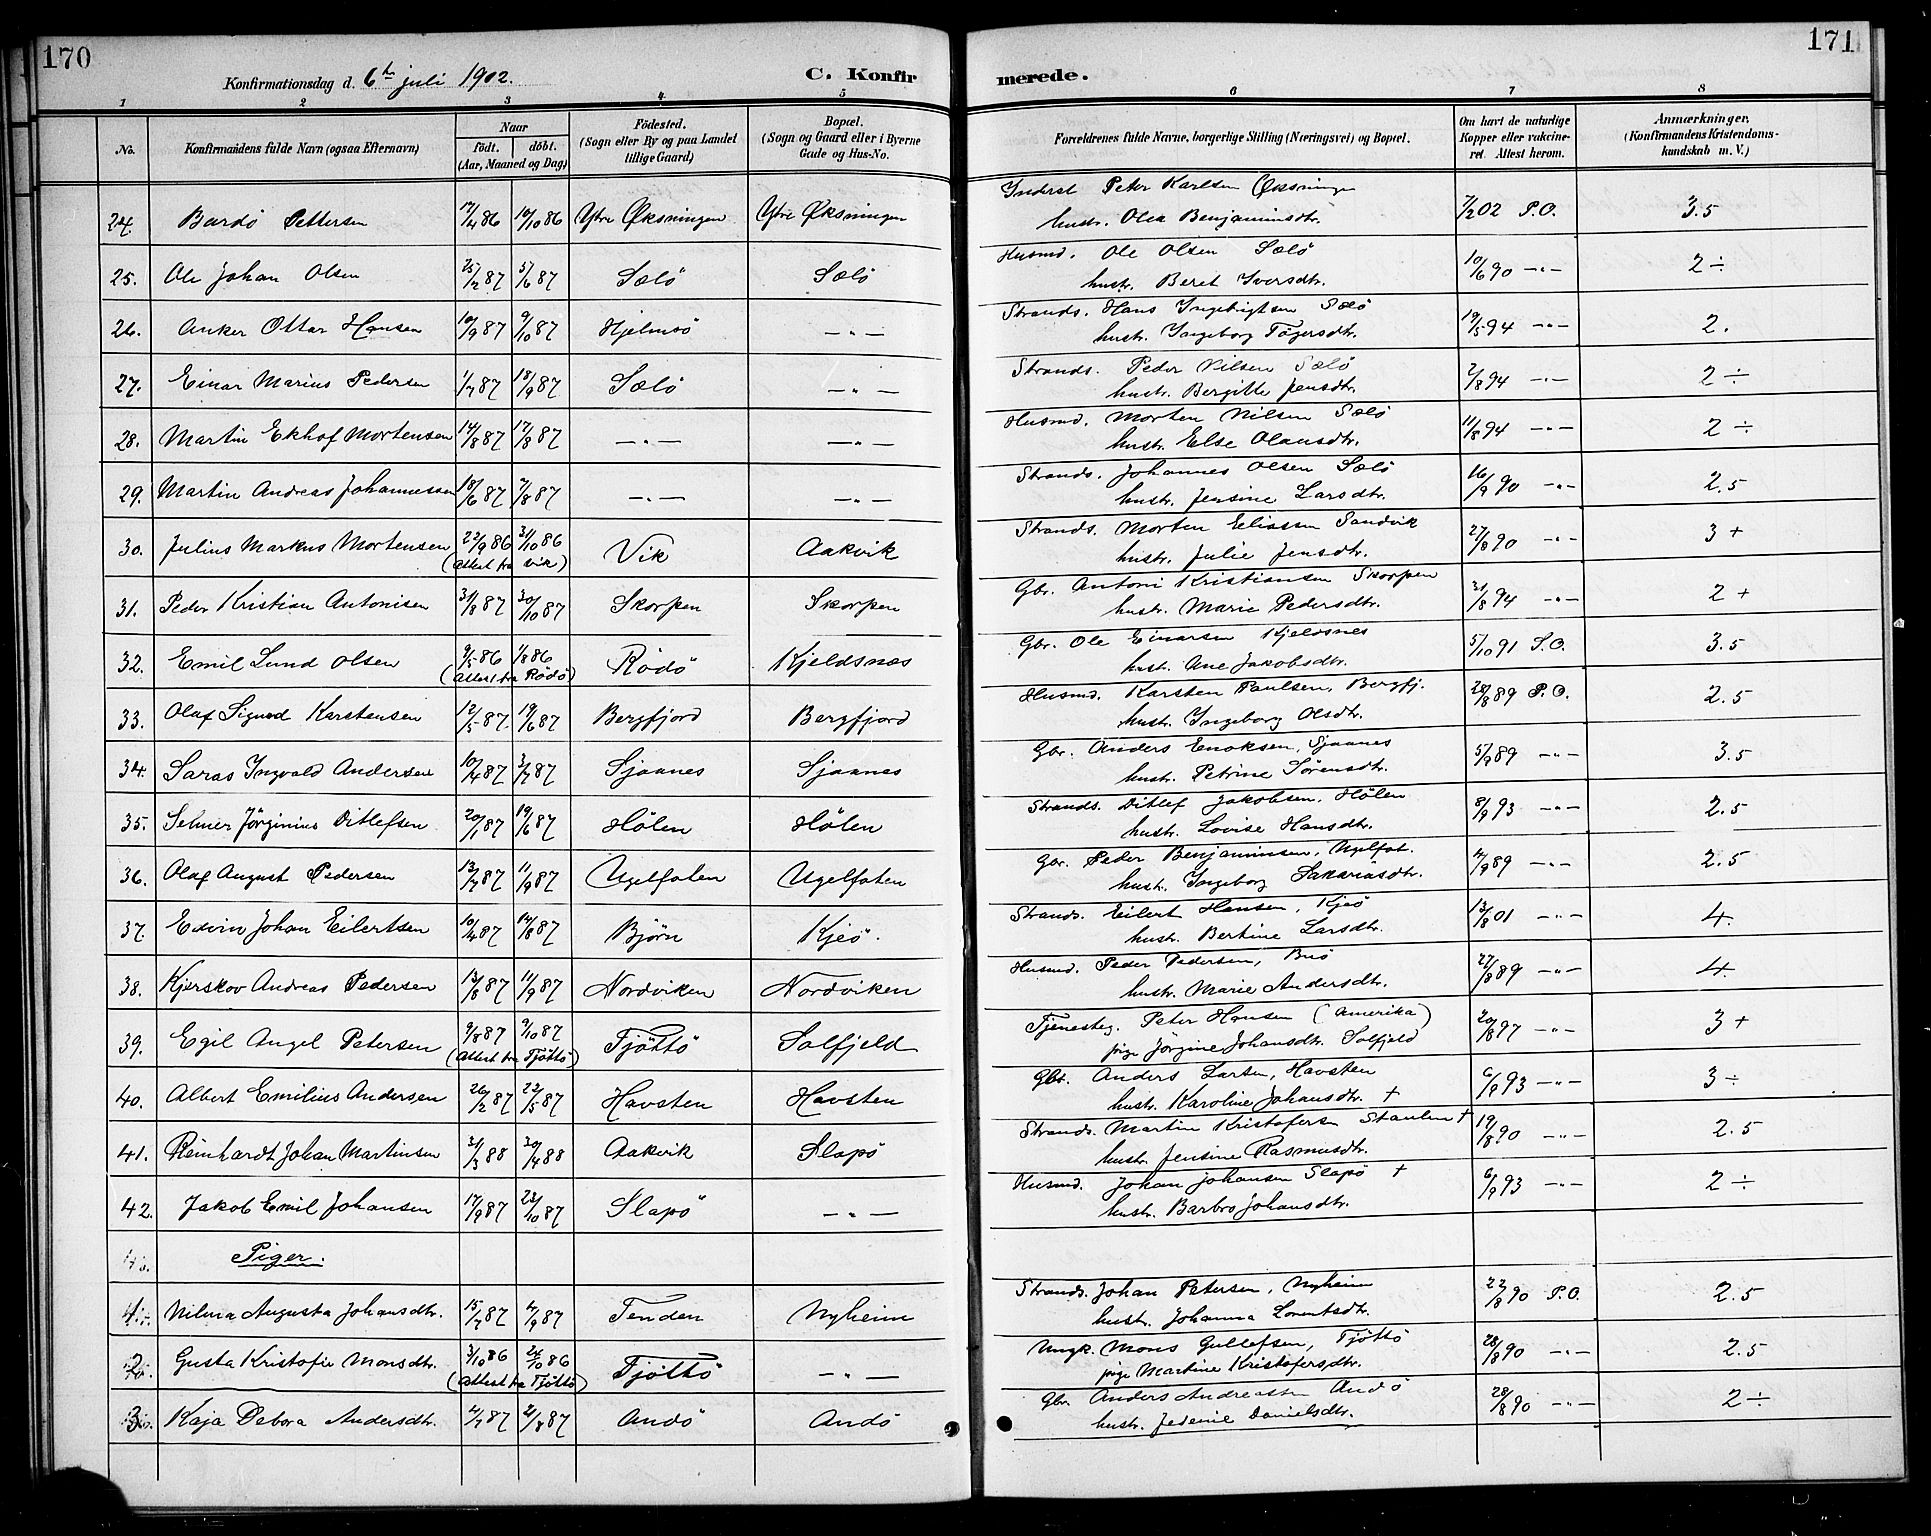 170
171
Konfirmationsdag d. 6te juli 1902.
C. Konfir
merede.
1 2 3 4 5 6 7 8
No.
Konfirmandens fulde Navn (ogsaa Efternavn)
Naar
födt. döbt.
(Aar, Maaned og Dag)
Födested.
(Sogn eller By og paa Landet tillige Gaard)
Bopæl.
(Sogn og Gaard eller i Byerne Gade og Hus-No.
Forældrenes fulde Navne, borgerlige Stilling (Næringsvei) og Bopæl.
Om havt de naturlige Kopper eller vaccineret. Attest herom.
Anmærkninger.
(Konfirmandens Kristendomskundskab m. V.)
24. Bardö Pettersen 17/4 86 10/10 86 Ytre Øksningen Ytre Øksningen Inderst Peter Karlsen Øksningen 7/2 02 P.O. 3.5
hustr. Olea Benjaminsdtr.
25. Ole Johan Olsen 25/2 87 5/6 87 Sælö Sælö Husmd. Ole Olsen Sælö 10/6 90 —"— 2 ÷
hustr. Beret Iversdtr.
26. Anker Ottar Hansen 10/9 87 9/10 87 Hjelmsö —"— Strands. Hans Ingebrigtsen Sælö 19/5 94 —"— 2.
hustr. Ingeborg Tögersdtr.
27. Einar Marius Pedersen 1/7 87 18/9 87 Sælö —"— Strands. Peder Nilsen Sælö 2/8 94 —"— 2 ÷
hustr. Bergitte Jensdtr.
28. Martin Ekhof Mortensen 14/8 87 17/8 87 —"— —"— Husmd. Morten Nilsen Sælö 11/8 94 —"— 2 ÷
hustr. Else Olausdtr.
29. Martin Andreas Johannessen 18/6 87 7/8 87 —"— —"— Strands. Johannes Olsen Sælö 16/9 90 —"— 2.5
hustr. Jensine Larsdtr.
30. Julius Markus Mortensen 22/9 86 31/10 86 Vik Aakvik Strands. Morten Eliassen Sandvik 27/8 90 —"— 3 +
(Attest fra Vik) hustr. Julie Jensdtr.
31. Peder Kristian Antonisen 31/8 87 30/10 87 Skorpen Skorpen Gbr. Antoni Kristiansen Skorpen 31/8 94 —"— 2 +
hustr. Marie Pedersdtr.
32. Emil Lund Olsen 9/5 86 1/8 86 Rödö Kjeldsnes Gbr. Ole Einarsen Kjeldsnes 5/10 91 S.O. 3.5
(Attest fra Rödö) hust. Ane Jakobsdtr.
33. Olaf Sigurd Karstensen 12/5 87 19/6 87 Bergfjord Bergfjord Husmd. Karsten Paulsen, Bergfj. 28/8 89 P.O. 2.5
hustr. Ingeborg Olsdtr.
34. Saras Ingvald Andersen 10/4 87 3/7 87 Sjaanes Sjaanes Gbr. Anders Enoksen, Sjaanes 5/9 89 —"— 3.5
hustr. Petrine Sörensdtr.
35. Selmer Jörginius Ditlefsen 20/1 87 19/6 87 Hölen Hölen Strands. Ditlef Jakobsen, Hölen 8/9 93 —"— 2.5
hustr. Lovise Hansdtr.
36. Olaf August Pedersen 13/7 87 11/9 87 Ugelfoten Ugelfoten Gbr. Peder Benjaminsen, Ugelfot. 4/9 89 —"— 2.5
hustr. Ingeborg Sakariasdtr.
37. Edvin Johan Eilertsen 10/4 87 14/8 87 Björn Kjeö. Strands. Eilert Hansen, Kjeö 13/8 01 —"— 4.
hustr. Bertine Larsdtr.
38. Kjerskov Andreas Pedersen 13/8 87 11/9 87 Nordviken Nordviken Husmd. Peder Pedersen, Buö 27/8 89 —"— 4.
hustr. Marie Andersdtr.
39. Egil Angel Petersen 9/8 87 9/10 87 Tjöttö Solfjeld Tjenesteg. Peter Hansen (Amerika) 20/8 97 —"— 3 +
(Attest fra Tjöttö) pige Jörgine Johansdtr. Solfjeld
40. Albert Emilius Andersen 26/2 87 22/5 87 Havsten Havsten Gbr. Anders Larsen, Havsten 6/9 93 —"— 3 ÷
hustr. Karoline Johansdtr. +
41. Reinhardt Johan Martinsen 31/3 88 30/4 88 Aakvik Slapö Strands. Martin Kristofersen Staulen + 19/8 90 —"— 2.5
hustr. Jensine Rasmusdtr.
42. Jakob Emil Johansen 17/9 87 23/10 87 Slapö —"— Husmd. Johan Johansen Slapö + 6/9 93 —"— 2 ÷
hustr. Barbro Johansdtr.
Piger.
1. Nilma Augusta Johansdtr. 15/7 87 4/9 87 Tenden Nyheim Strands. Johan Petersen, Nyheim 22/8 90 P.O. 2.5
hustr. Johanna Lorentsdtr.
2. Gusta Kristofie Monsdtr. 3/10 86 24/10 86 Tjöttö —"— Ungk. Mons Gullefsen, Tjöttö 28/8 90 —"— 2.5
(Attest fra Tjöttö) pige Martine Kristofersdtr.
3. Kaja Debora Andersdtr. 4/7 87 21/8 87 Andö Andö Gbr. Anders Andreassen Andö 28/8 90 —"— 2 ÷
hustr. Jedenie Danielsdtr.